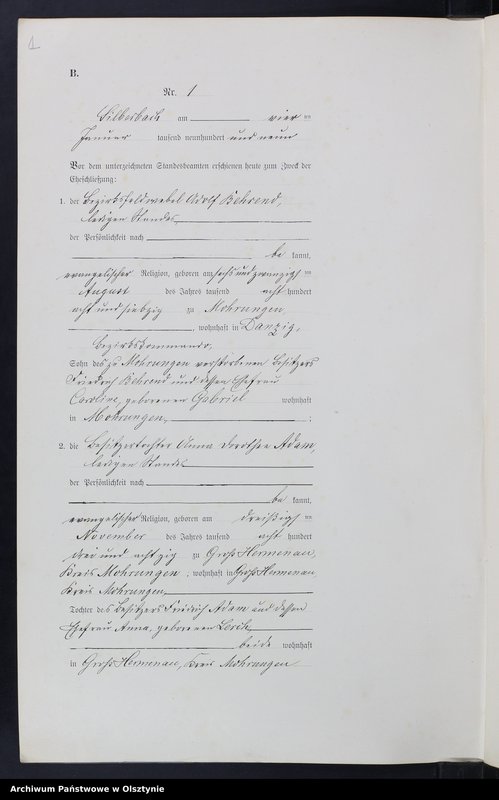 1
B.
Nr. 1
Silberbach am vierten
Januar tausend neunhundert und neun
Vor dem unterzeichneten Standesbeamten erschienen heute zum Zweck der
Eheschließung:
1. der Bezirksfeldwebel Adolf Behrend,
ledigen Standes,
der Persönlichkeit nach
be kannt,
evangelischer Religion, geboren am sechsundzwanzigsten
August des Jahres tausend acht hundert
acht und siebzig zu Mohrungen,
, wohnhaft in Danzig,
Bezirkskommando,
Sohn des zu Mohrungen verstorbenen Besitzers
Friedrich Behrend und dessen Ehefrau
Caroline, geborenen Gabriel wohnhaft
in Mohrungen, ;
2. die Besitzertochter Anna Dorothee Adam,
ledigen Standes
der Persönlichkeit nach
be kannt,
evangelischer Religion, geboren am dreißigsten
November des Jahres tausend acht hundert
drei und achtzig zu Groß Hermenau,
Kreis Mohrungen ; wohnhaft in Groß Hermenau,
Kreis Mohrungen,
Tochter des Besitzers Friedrich Adam und dessen
Ehefrau Anna, geborenen
beide wohnhaft
in Groß Hermenau, Kreis Mohrungen
Archiwum Państwowe w Olsztynie